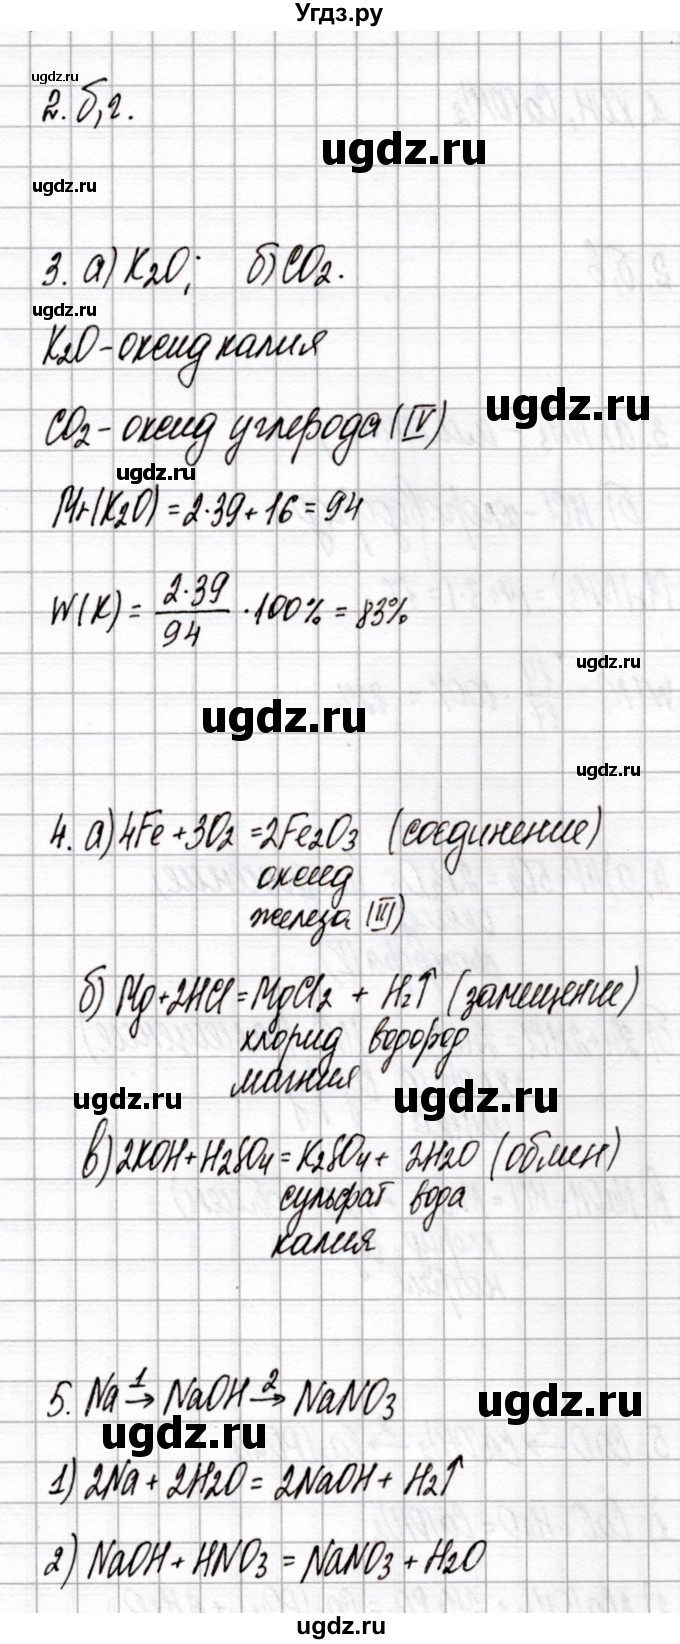 Угдз.ру
ugdz.ru
2. б, г.
ugdz.ru
ugdz.ru
3. а) K2O; б) CO2.
ugdz.ru
K2O - оксид калия
ugdz.ru
CO2 - оксид углерода (IV)
ugdz.ru
Mr(K2O) = 2·39 + 16 = 94
W(K) = 2·39/94 · 100% = 83%
ugdz.ru
ugdz.ru
ugdz.ru
4. а) 4Fe + 3O2 = 2Fe2O3 (соединение)
оксид
железа (III)
б) Mg + 2HCl = MgCl2 + H2↑ (замещение)
хлорид водород
магния
ugdz.ru
ugdz.ru
в) 2KOH + H2SO4 = K2SO4 + 2H2O (обмен)
сульфат вода
калия
5. Na 1→ NaOH 2→ NaNO3
ugdz.ru
ugdz.ru
1) 2Na + 2H2O = 2NaOH + H2↑
2) NaOH + HNO3 = NaNO3 + H2O
ugdz.ru